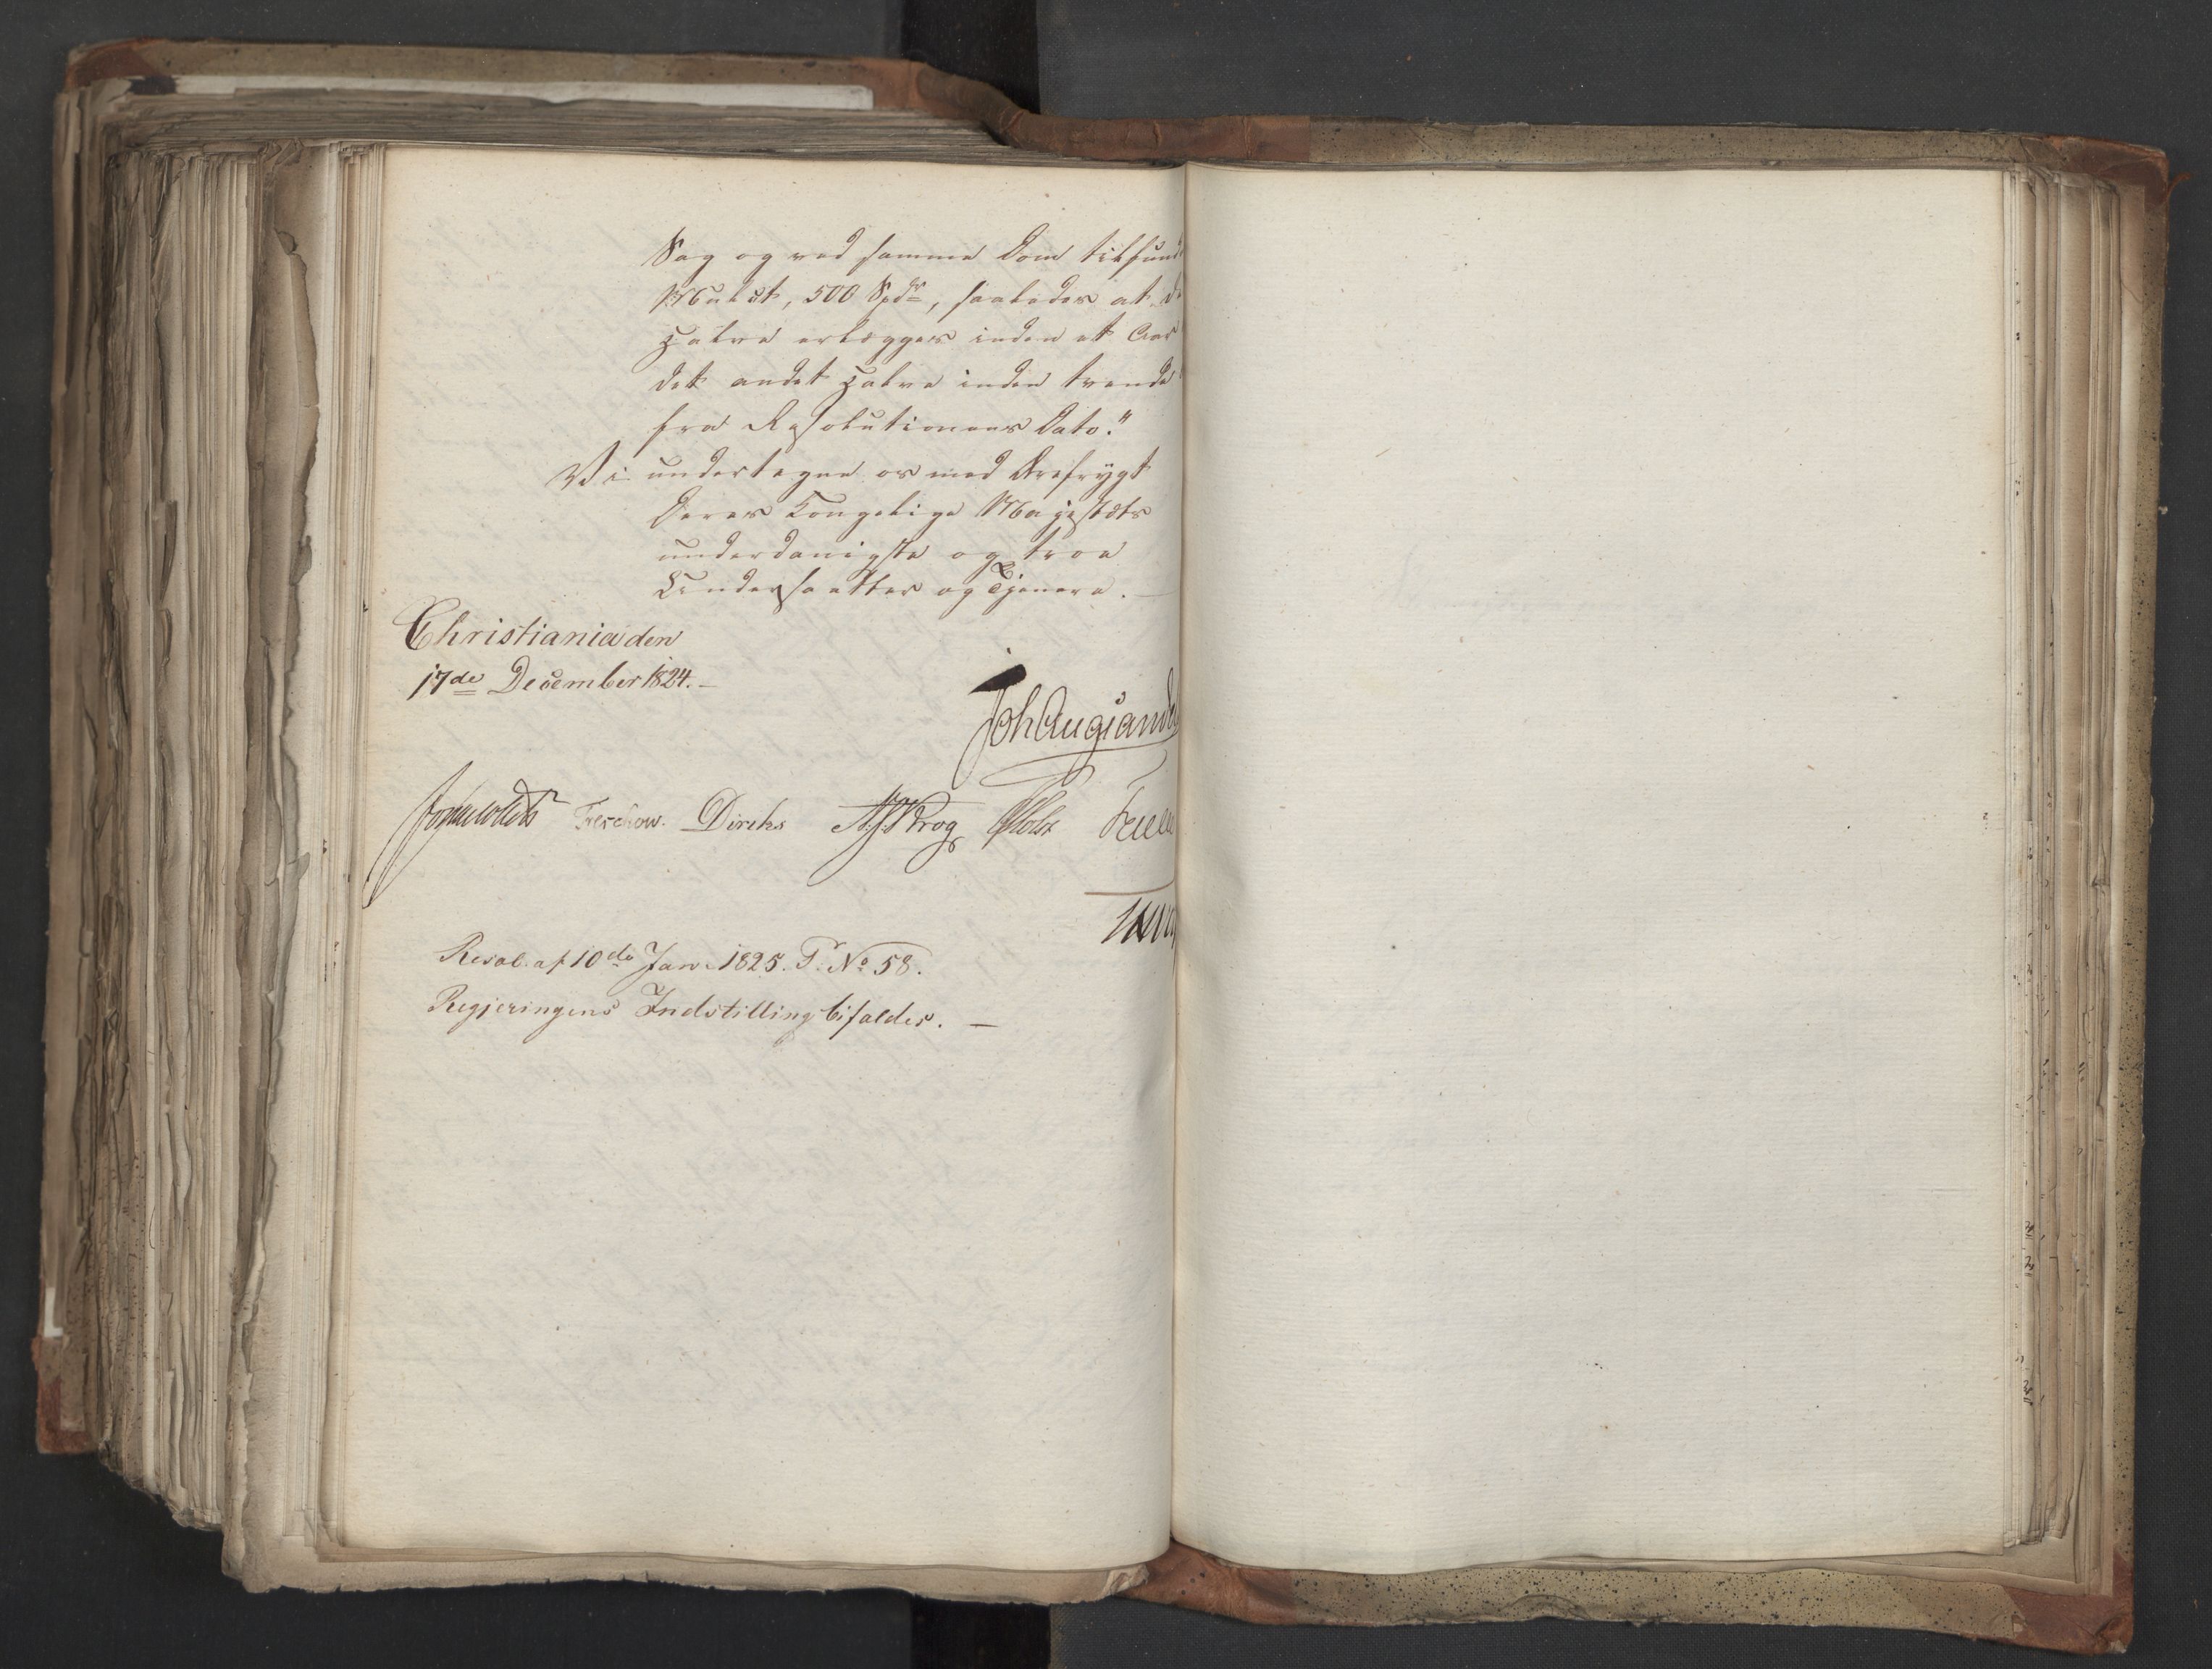 Sag og ved samme Dom tilfund
Mulct, 500 Spdr, saaledes at d
halve erlægges inden et Aar
det andet halve inden trende
fra Resolutionens Dato."
Vi undertegne os med Ærefrygt
Deres Kongelige Majestæts
underdanigste og troe
Undersaatter og Tjenere. —
Christiania den
17de December 1824. —
Joh Aug Sande
Treschow. Diriks Krog Holst
Resol. af 10de Jan. 1825. P. No 58.
Regjeringens Indstilling bifaldes. —